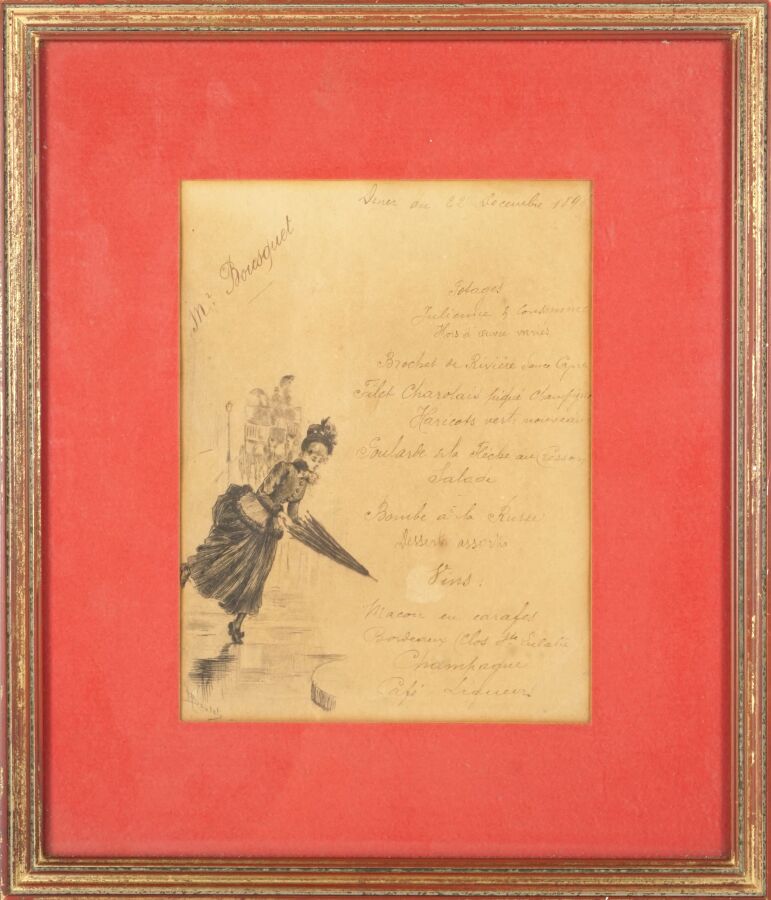 Diner du 22 Décembre 189
Mr. Bousquet
Potages
Julienne & Consommé
Hors d'œuvre variés
Brochet de Rivière sauce Capre
Filet Charolais piqué Champign
Haricots verts nouveaux
Poularde de la Flèche au Cresson
Salade
Bombe à la Russe
Desserts assortis
Vins :
Macon en carafes
Bordeaux (Clos Ste Eulalie
Champagne
Café Liqueurs